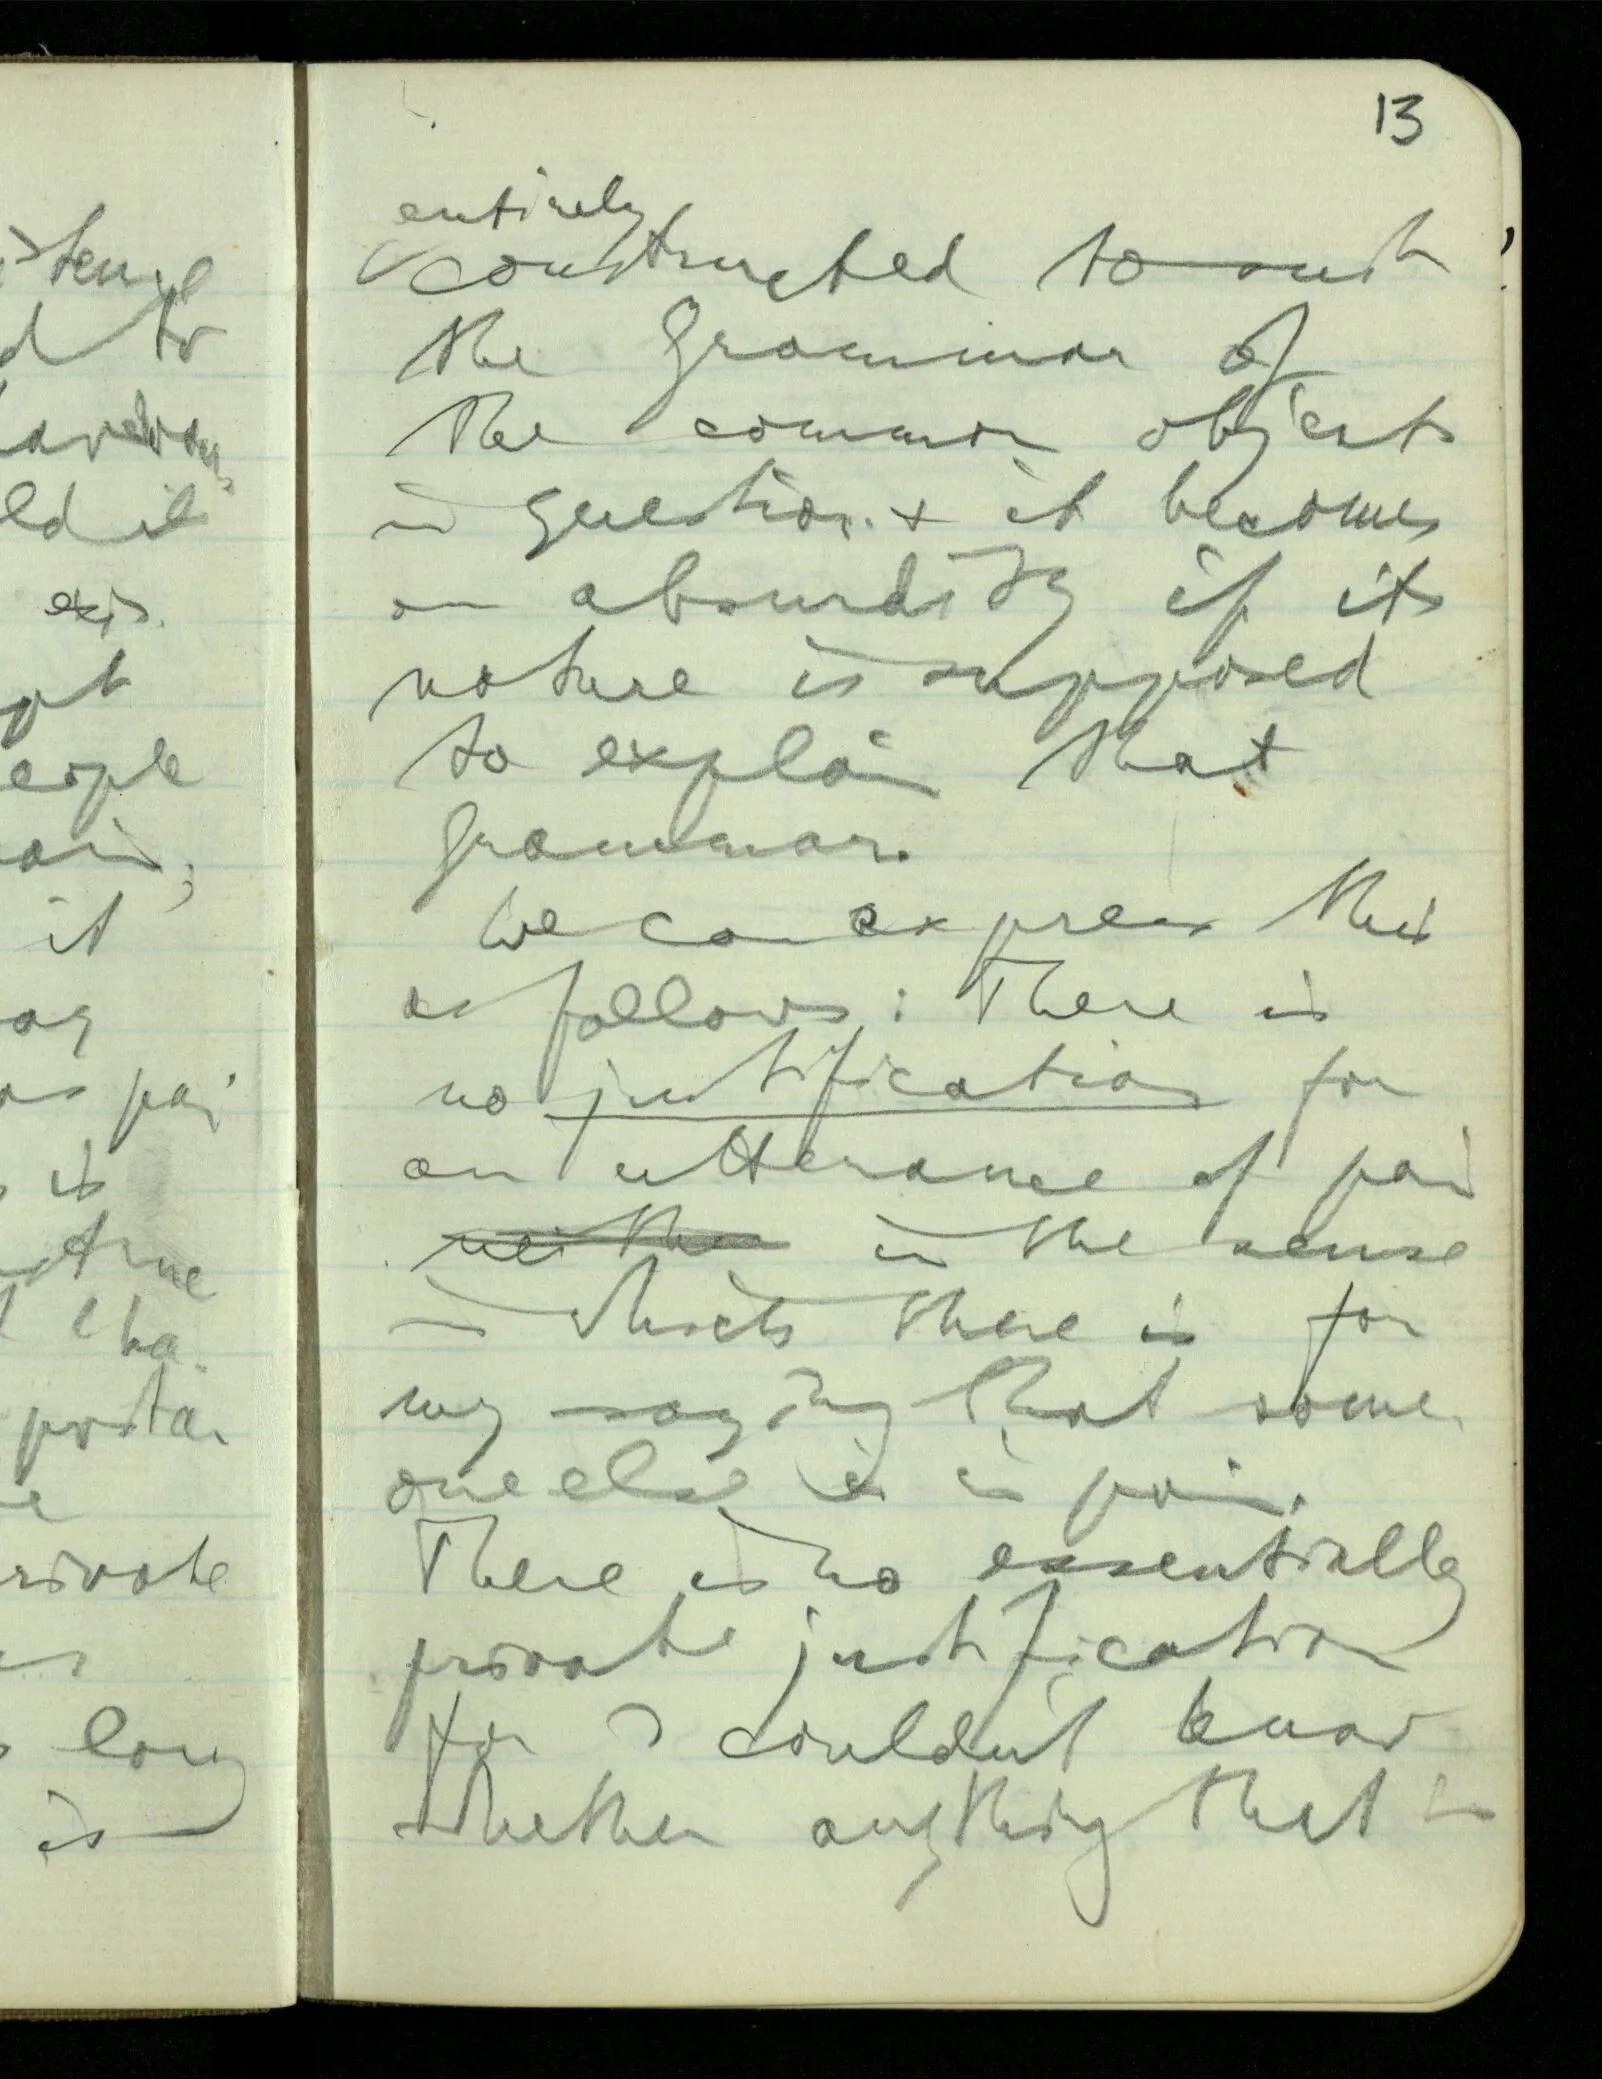 13
entirely
constructed to suit
the grammar of
the common objects
in question. & it becomes
an absurdity if its
nature is supposed
to explain that
grammar.
We can express this
as follows: There is
no justification for
an utterance of pain
neither in the sense
in which there is for
my saying that some
one else is in pain.
There is no essentially
private justification
for I couldn't know
whether anything that is
d to
ld it
exis.
it
is
private
long
is